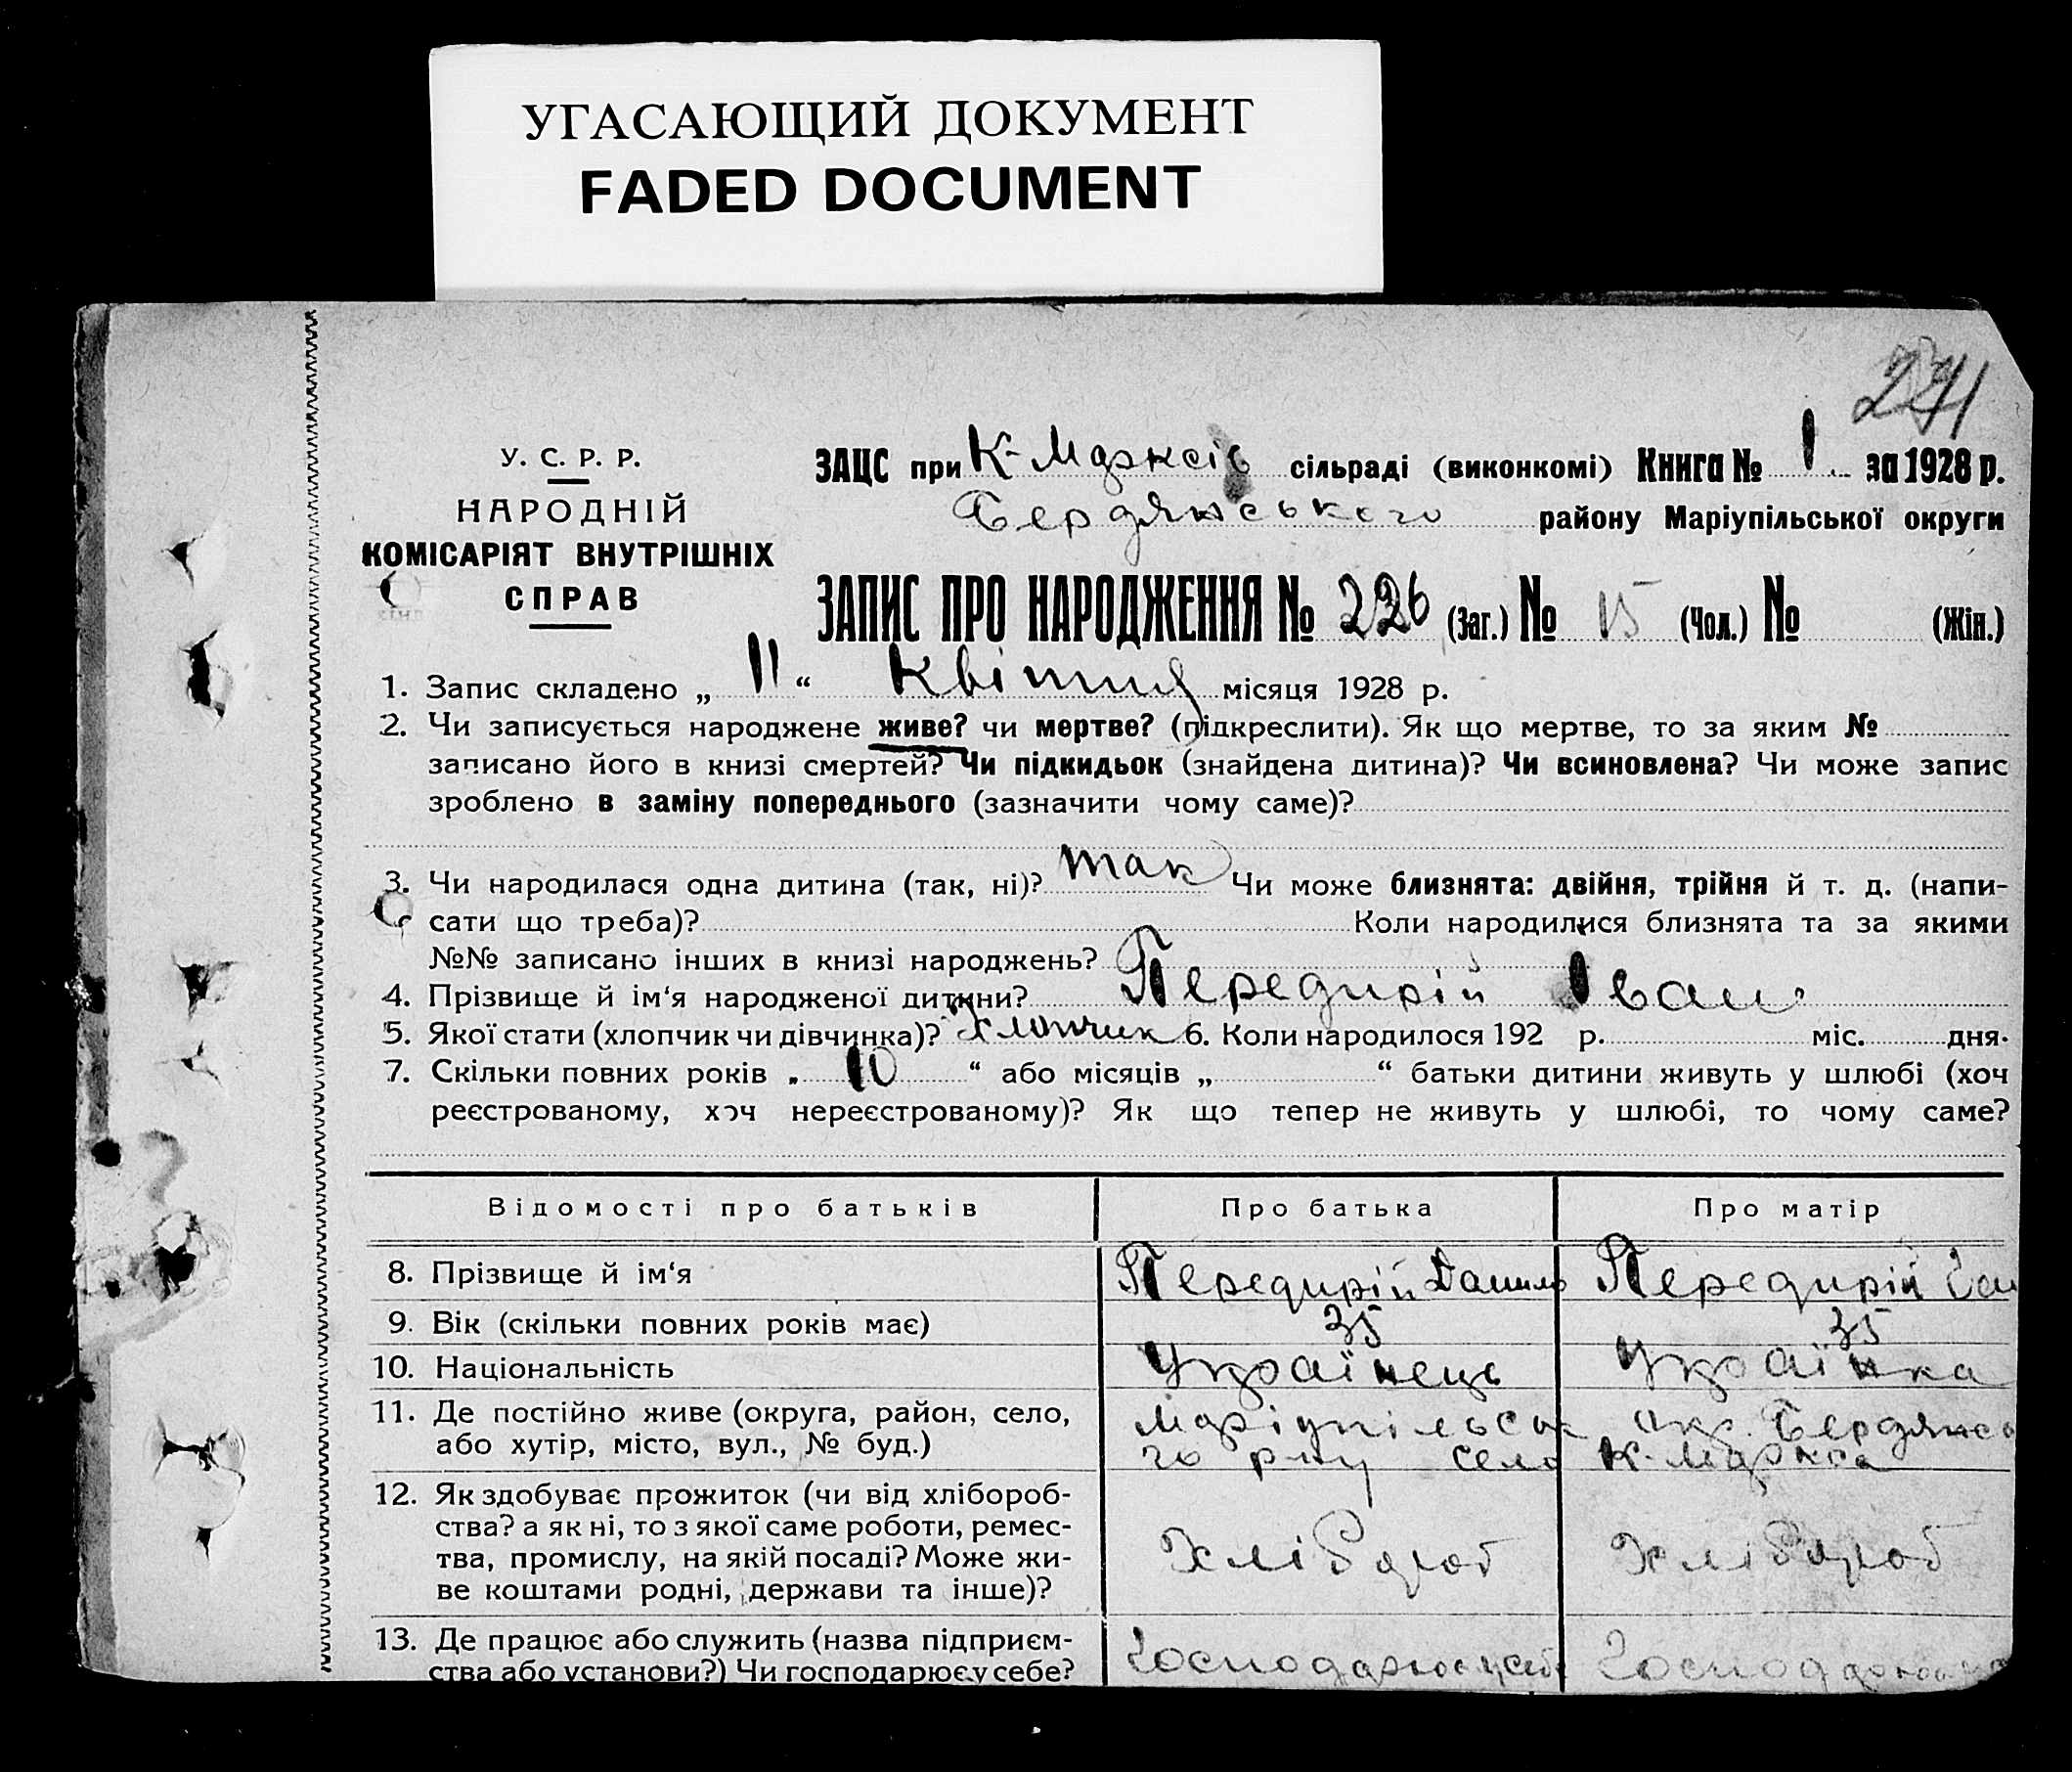 УГАСАЮЩИЙ ДОКУМЕНТ
FADED DOCUMENT
241
У. С. Р. Р.
НАРОДНІЙ
КОМІСАРІЯТ ВНУТРІШНІХ
СПРАВ
ЗАЦС при К-Марксів сільраді (виконкомі) Книга № 1 за 1928 р.
Бердянського району Маріупільської округи
ЗАПИС ПРО НАРОДЖЕННЯ № 226 (Заг.) № 15 (Чол.) № (Жін.)
1. Запис складено „ 11 “ Квітня місяця 1928 р.
2. Чи записується народжене живе? чи мертве? (підкреслити). Як що мертве, то за яким №
записано його в книзі смертей? Чи підкидьок (знайдена дитина)? Чи всиновлена? Чи може запис
зроблено в заміну попереднього (зазначити чому саме)?
3. Чи народилася одна дитина (так, ні)? так Чи може близнята: двійня, трійня й т. д. (напи-
сати що треба)? Коли народилися близнята та за якими
№№ записано інших в книзі народжень?
4. Прізвище й ім‘я народженої дитини? Передирій Іван
5. Якої стати (хлопчик чи дівчинка)? хлопчик 6. Коли народилося 192 р. міс. дня.
7. Скільки повних років „ 10 “ або місяців „ “ батьки дитини живуть у шлюбі (хоч
реєстрованому, хоч нереєстрованому)? Як що тепер не живуть у шлюбі, то чому саме?
Відомості про батьків Про батька Про матір
8. Прізвище й ім‘я Передирій Данило Передирій
9. Вік (скільки повних років має) 35 35
10. Національність Українець Українка
11. Де постійно живе (округа, район, село, Маріупільськ окр. Бердянсь
або хутір, місто, вул., № буд.) го р-ну село К-Маркса
12. Як здобуває прожиток (чи від хлібороб-
ства? а як ні, то з якої саме роботи, ремес-
тва, промислу, на якій посаді? Може жи- Хлібороб Хлібороб
ве коштами родні, держави та інше)?
13. Де працює або служить (назва підприєм-
ства або установи?) Чи господарює у себе? Господарює у себе Господарює у